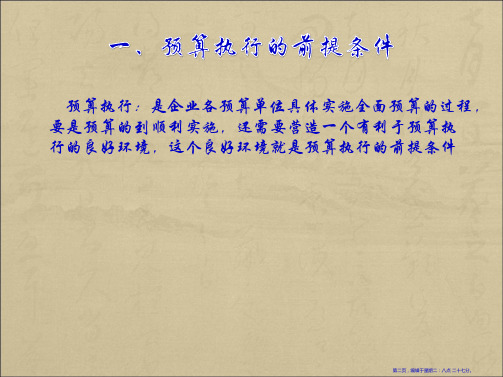 一、预算执行的前提条件
预算执行：是企业各预算单位具体实施全面预算的过程，
要是预算的到顺利实施，还需要营造一个有利于预算执
行的良好环境，这个良好环境就是预算执行的前提条件
第二页，编辑于星期二：八点 二十七分。